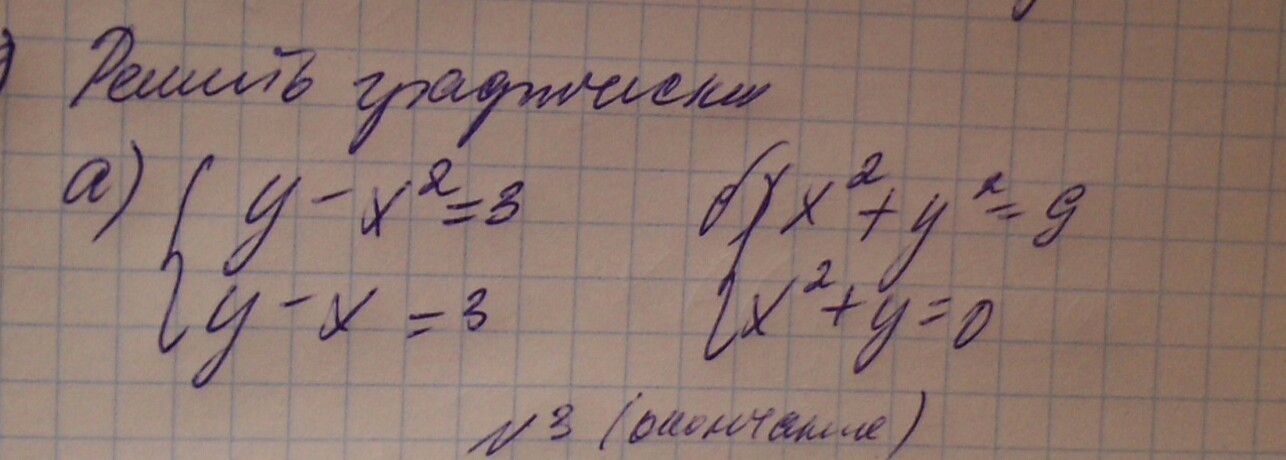 Решить графически
а) { y - x² = 3   б) { x² + y² = 9
y - x = 3   x² + y = 0
N3 (окончание)